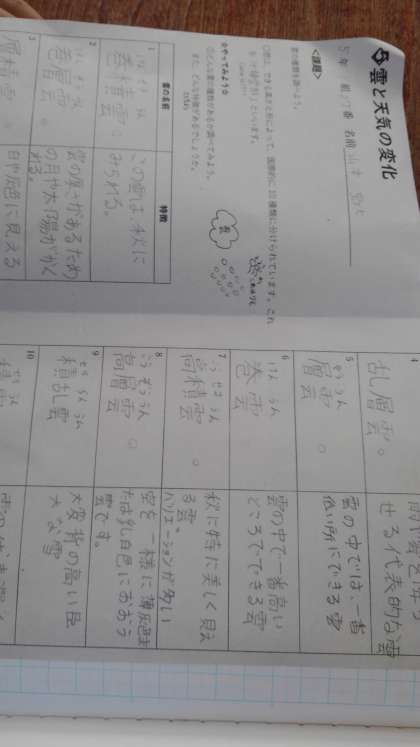 5 雲と天気の変化
5年 組 17番 名前 山本
<課題>
雲の種類を調べよう。
◎雲は、できる高さと形によって、国際的に10種類に分けられています。これ
を「十種雲形」といいます。
☆やってみよう☆
◎どんな雲の種類があるか調べてみよう。
また、どんな特徴があるでしょうか。
雲
雲の名前
特徴
1
けん せき うん
巻積雲
この雲は、秋に
みられる。
2
けん そう うん
巻層雲 ○
雲の厚さがあるため
の月や太陽がかく
れる。
3
層積雲
白や灰色に見える
4
乱層雲 ○
せる代表的な雲
5
そう うん
層雲 ○
雲の中では一番
低い所にできる雲
6
けん うん
巻雲
雲の中で一番高い
ところでできる雲
7
こう せき うん
高積雲 ○
秋に特に美しく見え
る雲
バリエーションが多い
8
こう そう うん
高層雲 ○
空を一様に薄灰色ま
たは乳白色におおう
雲です。
9
せき らん うん
積乱雲
大変背の高い巨
大な雲
10
せき うん
積雲